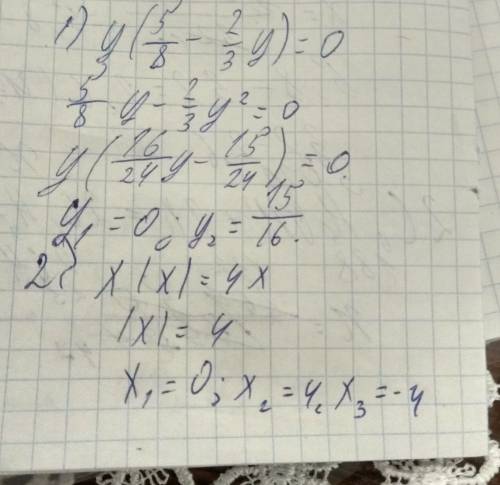 1) y(5/8 - 2/3 y) = 0
5/8 y - 2/3 y² = 0
y(16/24 y - 15/24) = 0.
y₁ = 0; y₂ = 15/16.
2) x|x| = 4x
|x| = 4
x₁ = 0; x₂ = 4, x₃ = -4